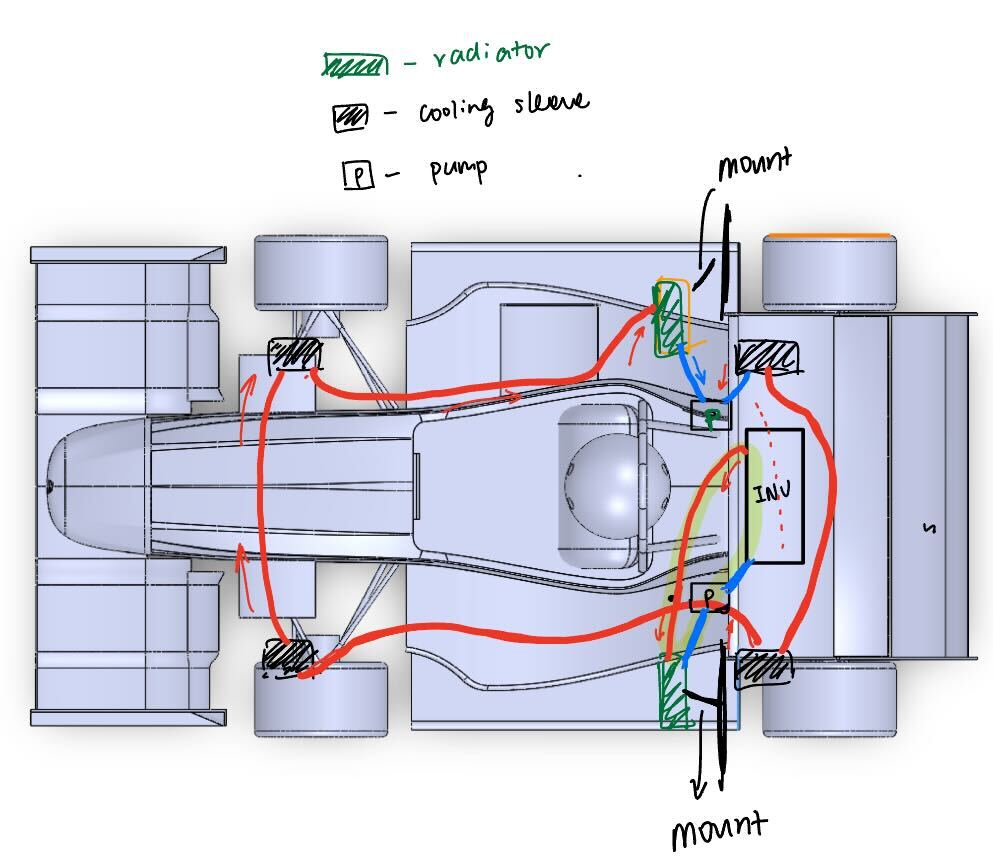 - radiator
- cooling sleeve
P - pump
mount
P
INV
S
P
mount